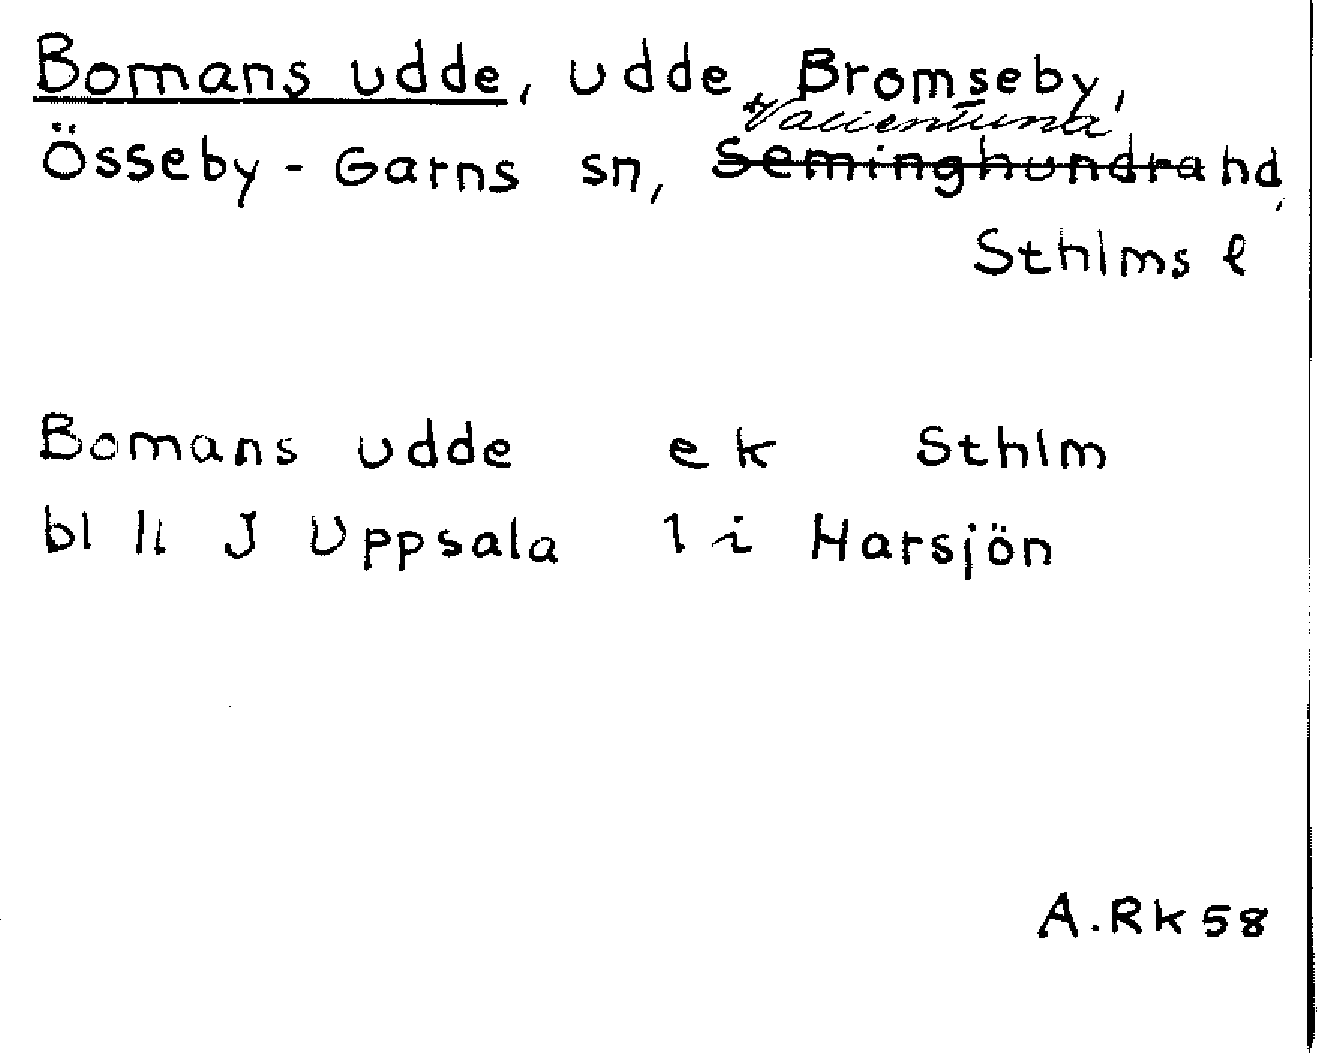 Bomans udde, udde, Bromseby,
*Vallentuna
Össeby - Garns sn, Seminghundra hd,
Sthlms l
Bomans udde ek Sthlm
bl 11 J Uppsala 1 i Harsjön
A.Rk 58